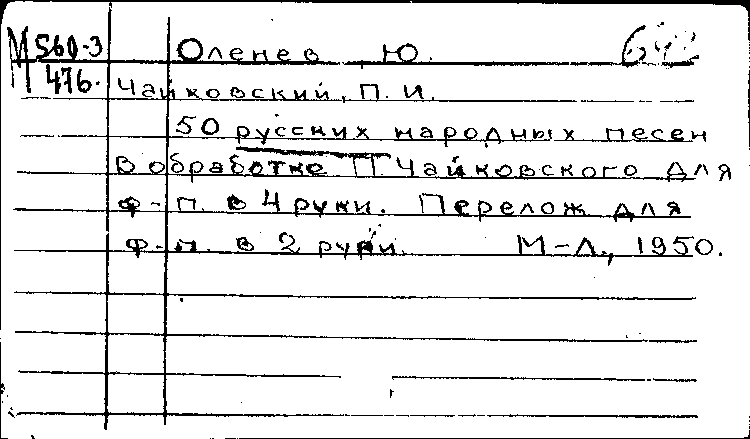 М 560-3 Оленев Ю.
476. Чайковский, П. И.
50 русских народных песен
в обработке П Чайковского для
ф-п. в 4 руки. Перелож для
ф-п. в 2 руки. М-Л., 1950.